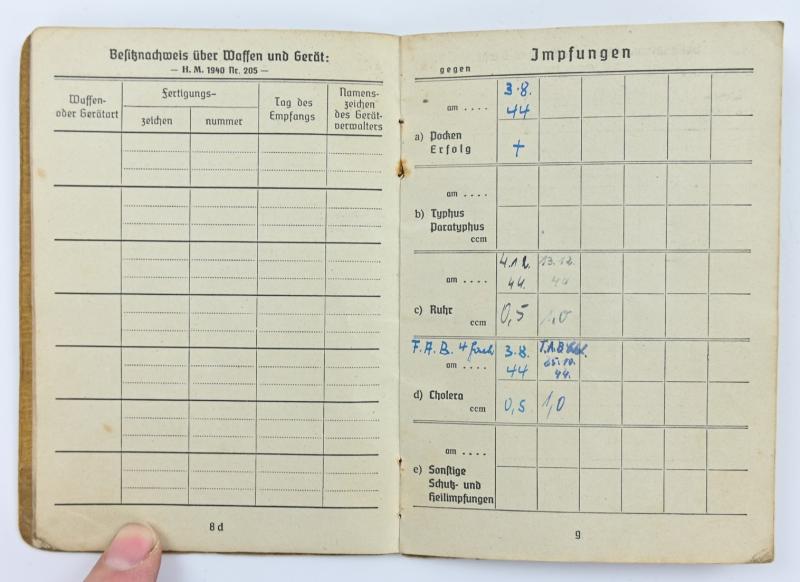 Besitznachweis über Waffen und Gerät:
— H. M. 1940 Nr. 205 —
Waffen-
oder Gerätart
Fertigungs-
zeichen
nummer
Tag des
Empfangs
Namens-
zeichen
des Gerät-
verwalters
8 d
Impfungen
gegen
am ....
3.8.
44
a) Pocken
Erfolg
+
am ....
b) Typhus
Paratyphus
ccm
am ....
4.12. 13.12.
44. 44
c) Ruhr
ccm
0,5 1,0
T.A.B. 4 fach 3.8. T.A.B.
am .... 44 25.10.
44.
d) Cholera
ccm
0,5 1,0
am ....
e) Sonstige
Schutz- und
Heilimpfungen
9